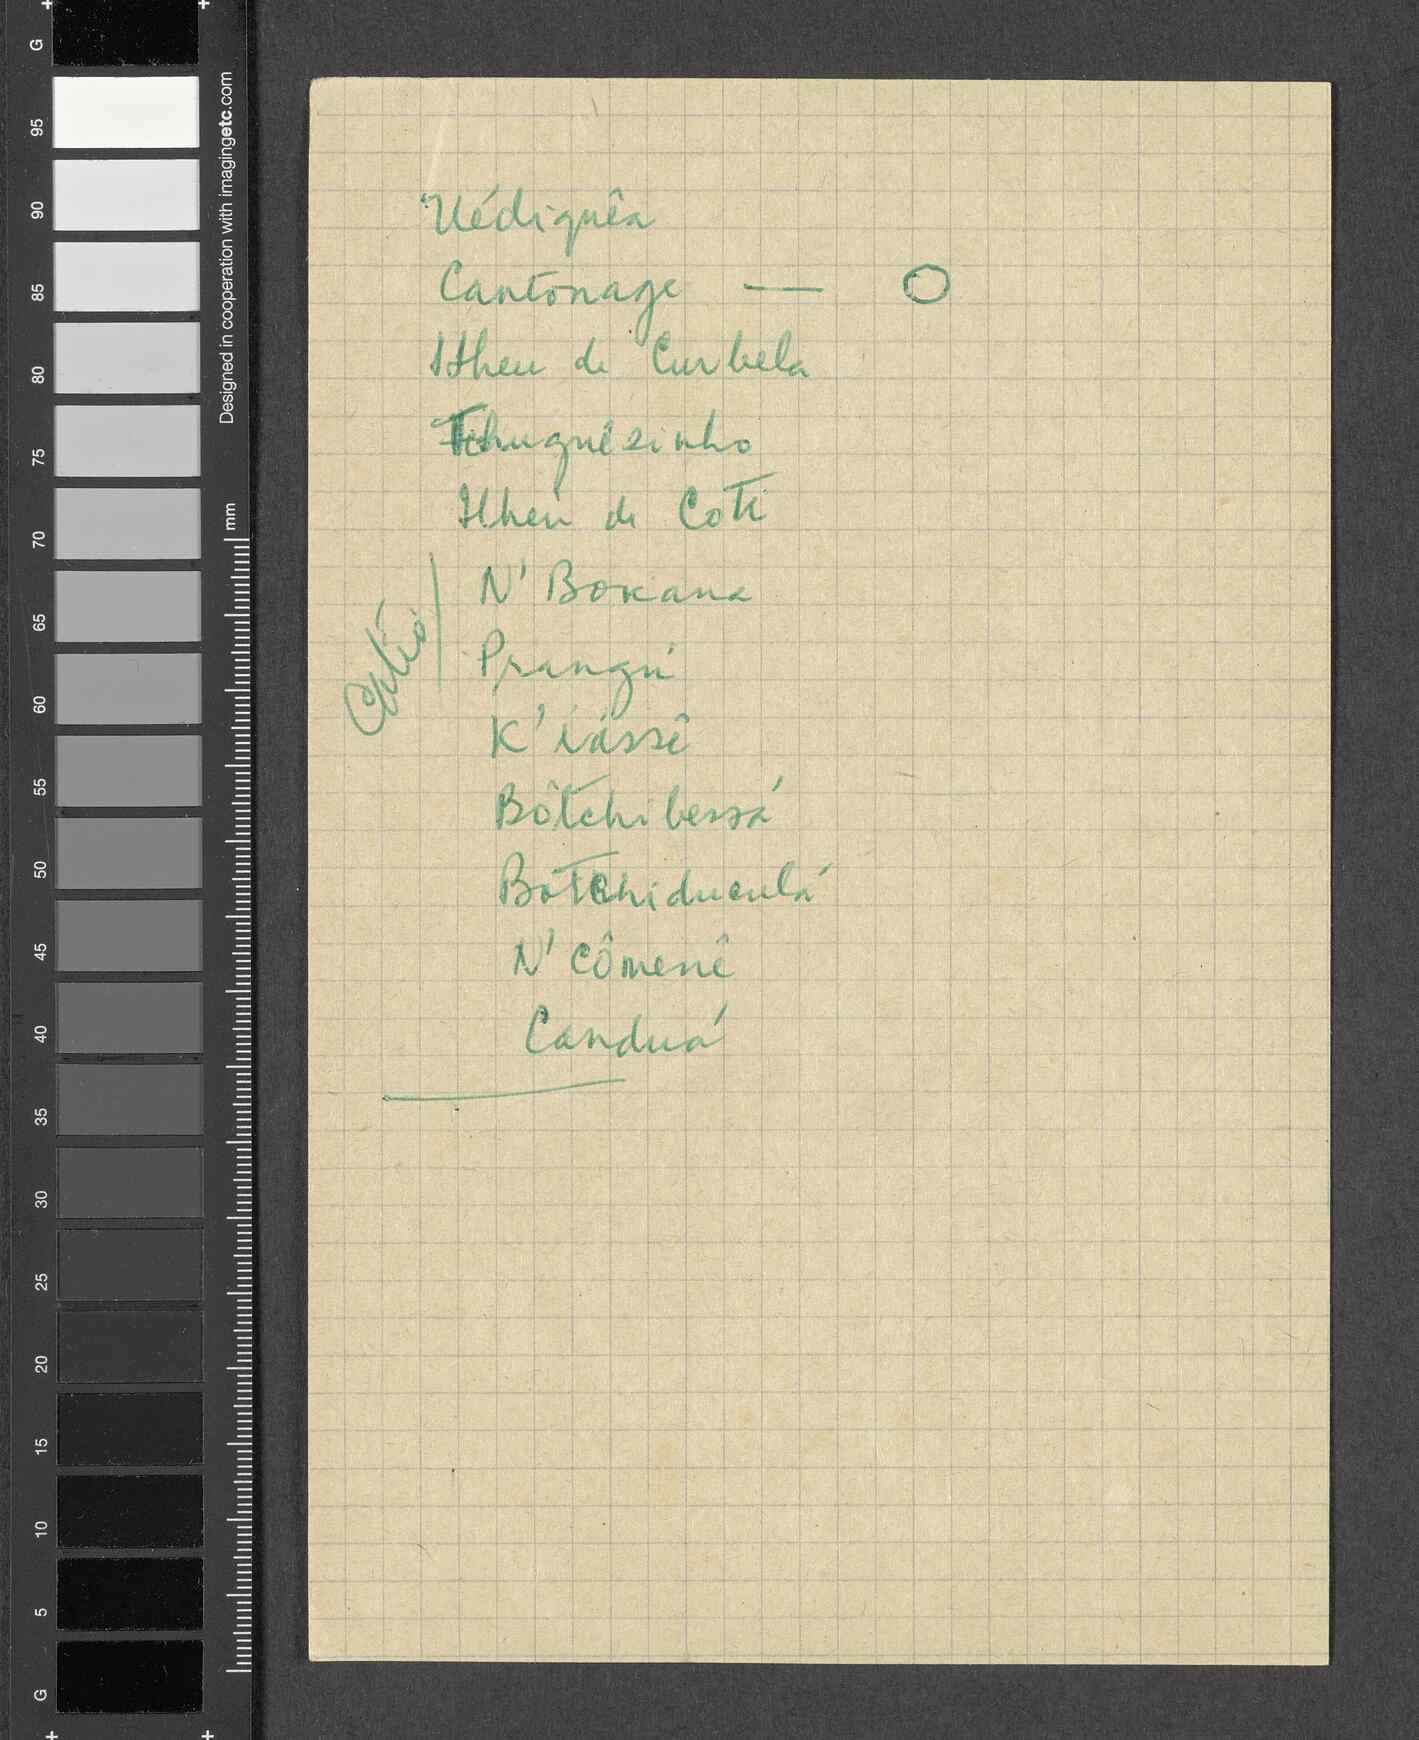 Uédiquêa
Cantonage — O
Ilheu de Curbela
Tchuguêzinho
Ilheu de Coti
Catió
N' Boxana
Prangú
K' iássê
Bôtchibessá
Botchiduculá
N' Cômenê
Canduá
Designed in cooperation with imagingetc.com
mm
G
95
90
85
80
75
70
65
60
55
50
45
40
35
30
25
20
15
10
5
G